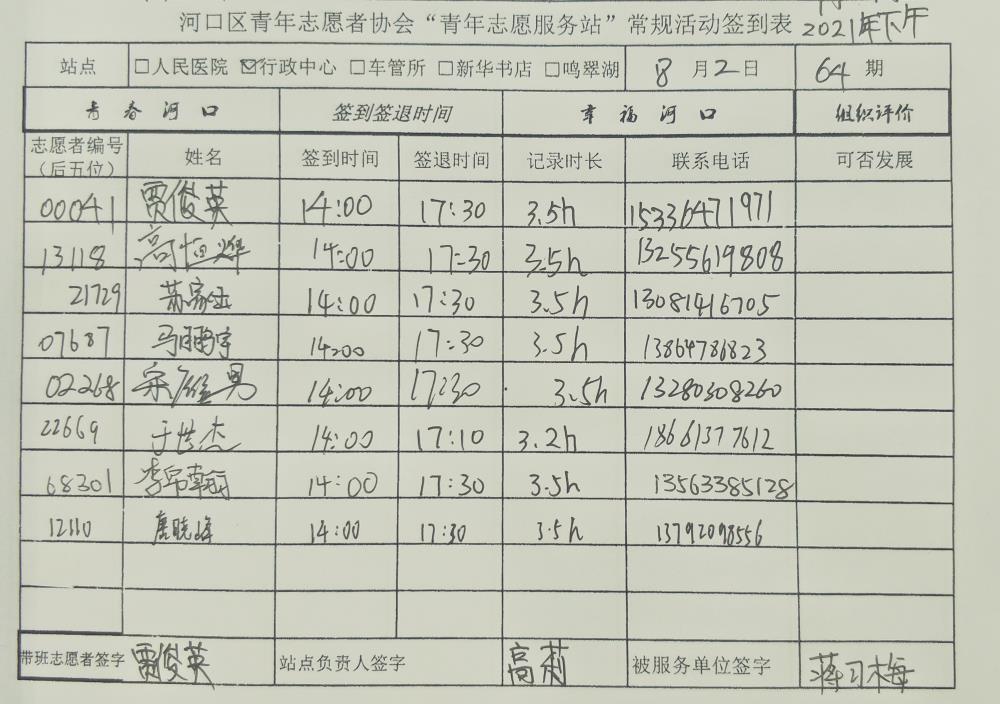 河口区青年志愿者协会“青年志愿服务站”常规活动签到表 2021年下午
站点 □人民医院 ☑行政中心 □车管所 □新华书店 □鸣翠湖 8月2日 64期
青春河口 签到签退时间 幸福河口 组织评价
志愿者编号（后五位） 姓名 签到时间 签退时间 记录时长 联系电话 可否发展
00041 贾俊英 14:00 17:30 3.5h 15336471971
13118 高恒烨 14:00 17:30 3.5h 13255619808
21729 苏家 14:00 17:30 3.5h 13081416705
07687 马鹏宇 14:00 17:30 3.5h 13864786823
02268 宋 男 14:00 17:30 3.5h 13280308260
22669 于世杰 14:00 17:10 3.2h 18661377612
68301 李 14:00 17:30 3.5h 13563385128
12110 唐晓峰 14:00 17:30 3.5h 13792098556
带班志愿者签字 贾俊英 站点负责人签字 高莉 被服务单位签字 蒋习梅